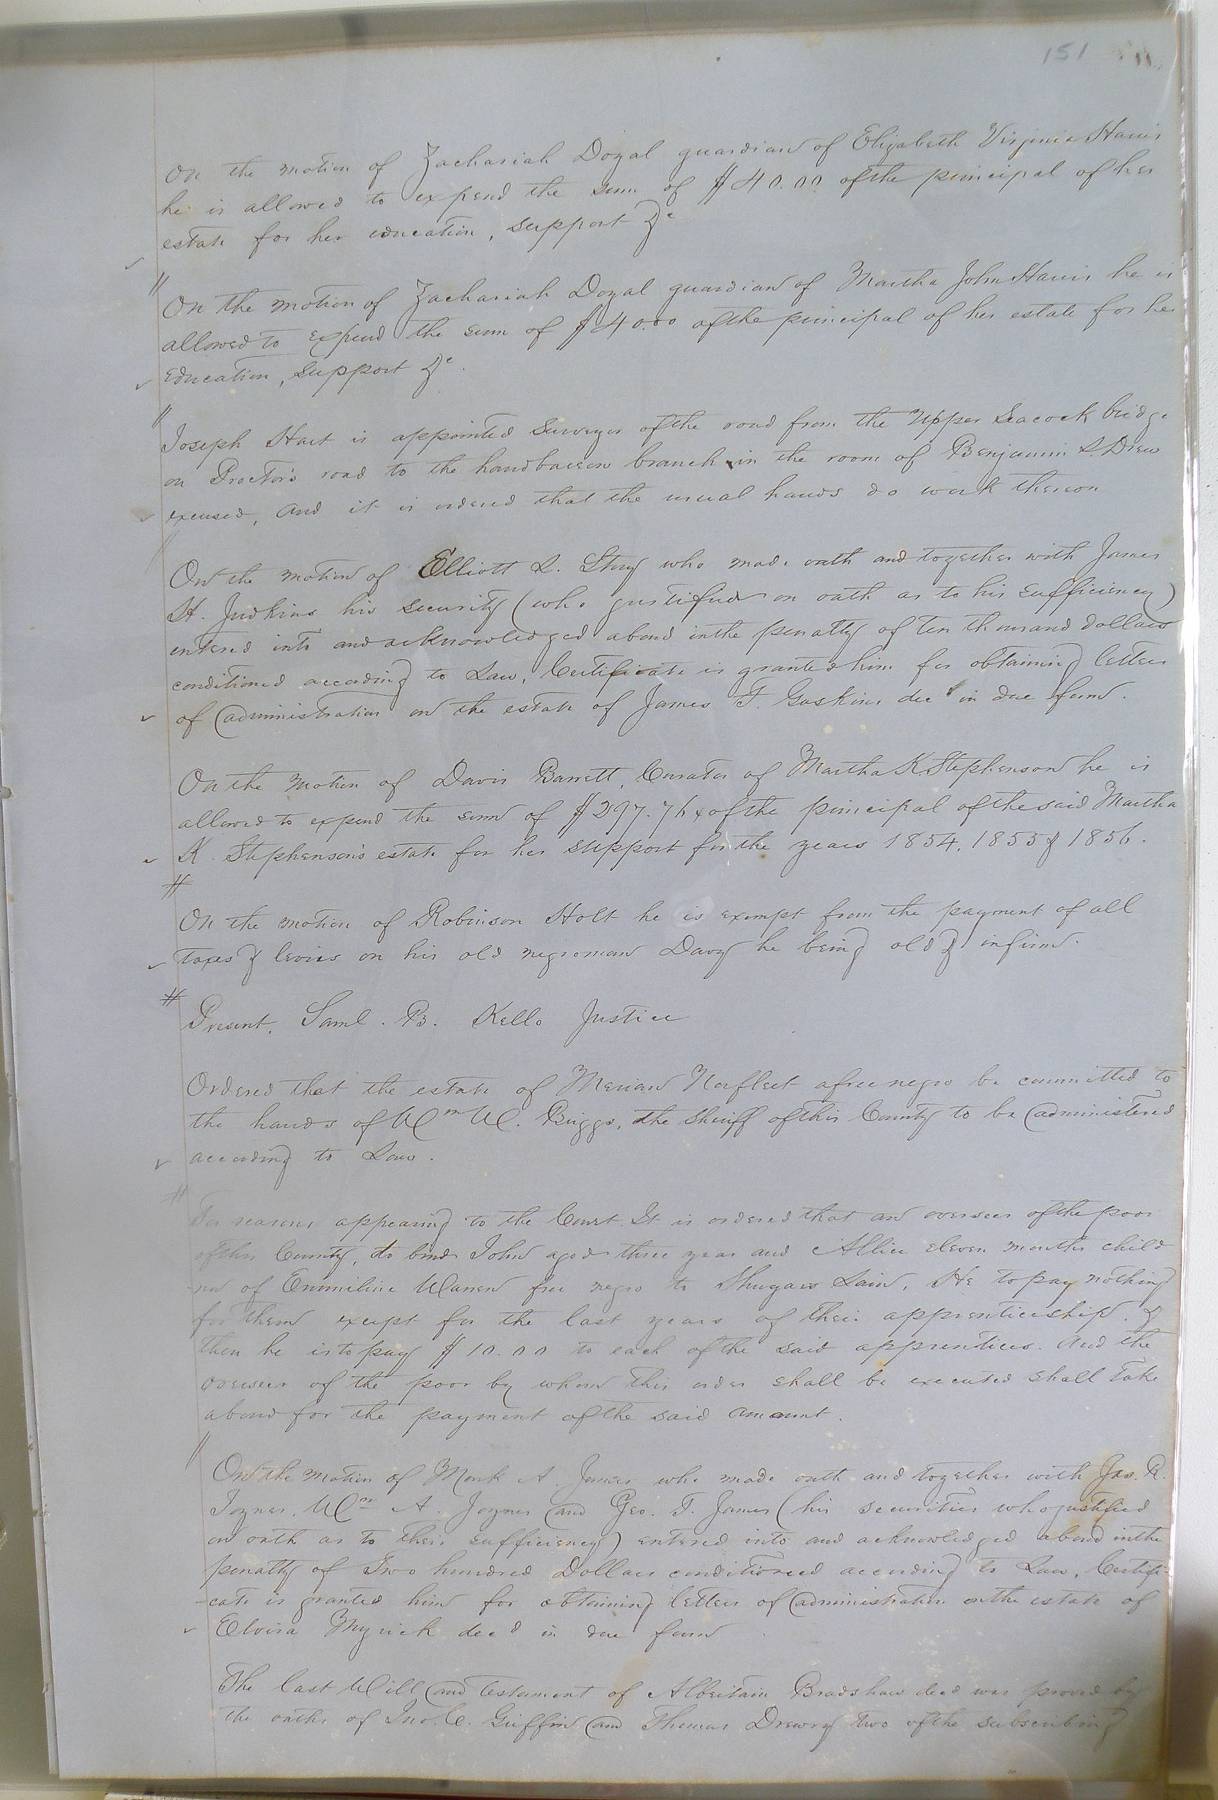 151
On the motion of Zachariah Doyal guardian of Elizabeth Virginia Harris
he is allowed to expend the sum of $40.00 of the principal of her
estate for her education, support &c
On the motion of Zachariah Doyal guardian of Martha John Harris he is
allowed to expend the sum of $40.00 of the principal of her estate for her
education, support &c.
Joseph Hart is appointed Surveyor of the road from the Upper Seacock bridge
on Proctor's road to the branch in the room of Benjamin S Drew
excused, and it is ordered that the usual hands do work thereon
On the motion of Elliott L. Story who made oath and together with James
H. Judkins his security (who justified on oath as to his sufficiency)
entered into and acknowledged a bond in the penalty of ten thousand dollars
conditioned according to Law, Certificate is granted him for obtaining letters
of administration on the estate of James T. Gaskins decd in due form.
On the motion of Davis Barrett, Curator of Martha K Stephenson he is
allowed to expend the sum of $297.76 of the principal of the said Martha
K. Stephenson's estate for her support for the years 1854, 1855 & 1856.
On the motion of Robinson Holt he is exempt from the payment of all
taxes & levies on his old negroman Davy he being old & infirm.
Present, Saml. B. Kello Justice
Ordered that the estate of Meriam Norfleet a free negro be committed to
the hands of Wm W. Briggs, the Sheriff of this County to be administered
according to Law.
For reasons appearing to the Court It is ordered that an overseer of the poor
of this County, do bind John aged three year and Allice eleven months child
-ren of Emmeline Warren free negro to Shugars Lain, He to pay nothing
for them except for the last years of their apprenticeship, &
then he is to pay $10.00 to each of the said apprentices. And the
overseer of the poor by whom this order shall be executed shall take
a bond for the payment of the said amount.
On the motion of Monk A. James who made oath and together with Jas. R.
Joyner, Wm A. Joyner and Geo. T. James (his securities who justified
on oath as to their sufficiency) entered into and acknowledged a bond in the
penalty of Two hundred Dollars conditioned according to Law, Certifi-
-cate is granted him for obtaining letters of administration on the estate of
Elvira Myrick decd in due form
The last Will and testament of Albritain Bradshaw decd was proved by
the oaths of Jno. C. Griffin and Thomas Drewry two of the subscribing